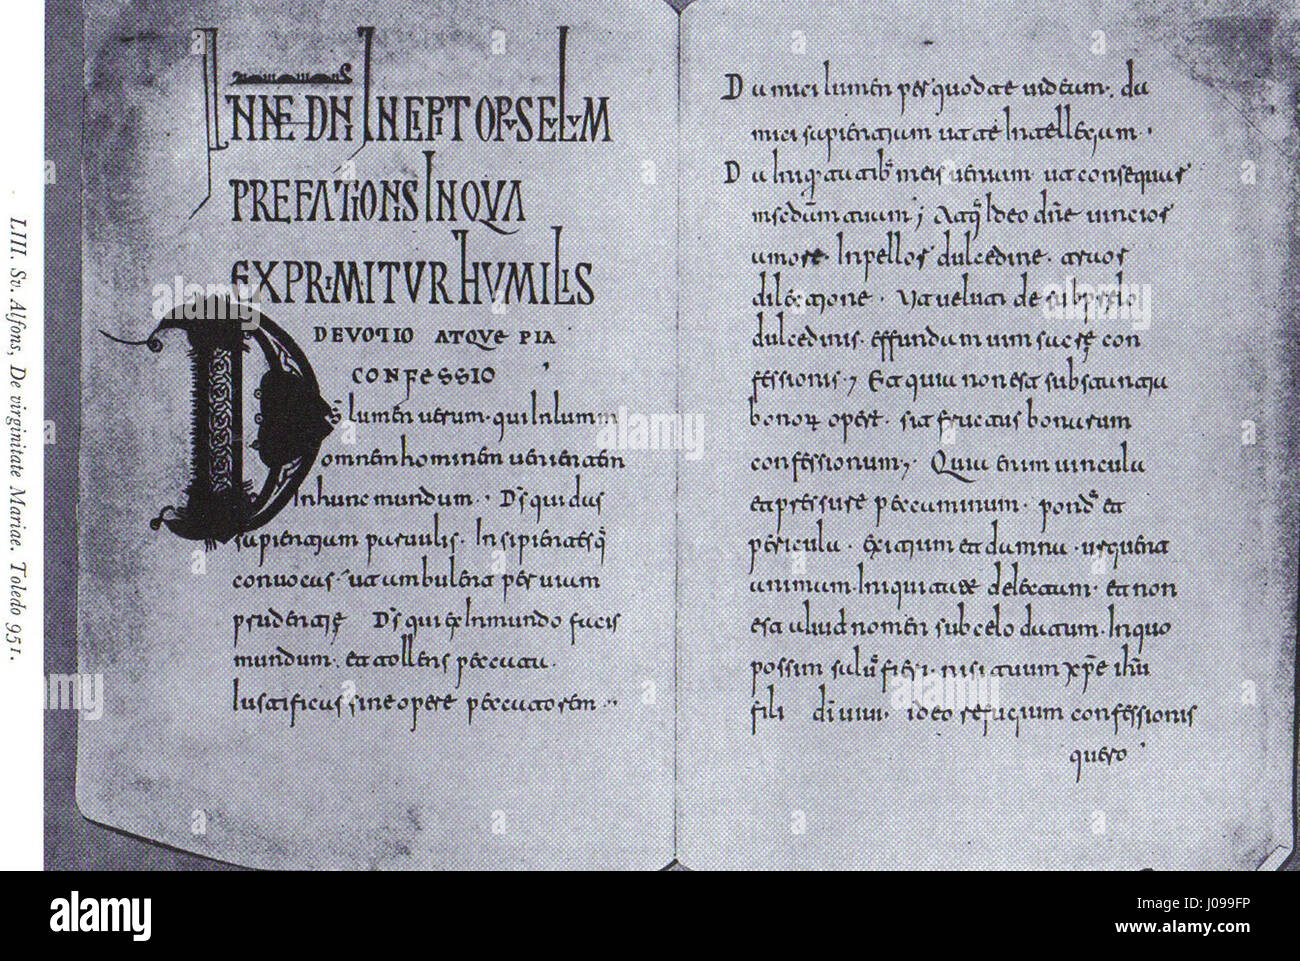 LIII. Sv. Alfons, De virginitate Mariae. Toledo 951.
IN NE DNI INCIPIT OPVSCVLVM
PREFATIONIS IN QVA
EXPRIMITVR HVMILIS
DEVOTIO ATQVE PIA
CONFESSIO
DS lumen uerum. qui inlumin
omnem hominem uenientem
in hunc mundum. Ds qui das
sapientiam paruulis. Insipientesq
conuocas. ut ambulent per uiam
prudentie Ds qui ex in mundo facis
mundum. et tollens peccatu.
Iustificas sine opere peccatorem
Da mici lumen per quod te uideam. da
mici sapientiam ut te intellegam.
Da iniq.tatib meis ueniam ut consequar
misedam tuam; Atq ideo dne uincior
amore. Inpellor dulcedine. artor
dilectione. Ut ueluti de subpelo
dulcedinis. effundam uim sacre con
fessionis; Et quia non est substantia
bonor opert. sit fructus bonarum
confessionum; Quia enim uincula
et pressure peccaminum. pond et
pericula. exitium et damna. urguent
animam. Iniquitate delectam. et non
est aliud nomen sub celo datum. In quo
possim salu fieri. nisi tuum xpe ihu
fili di uiui. ideo refugium confessionis
quero
alamy
J099FP
www.alamy.com